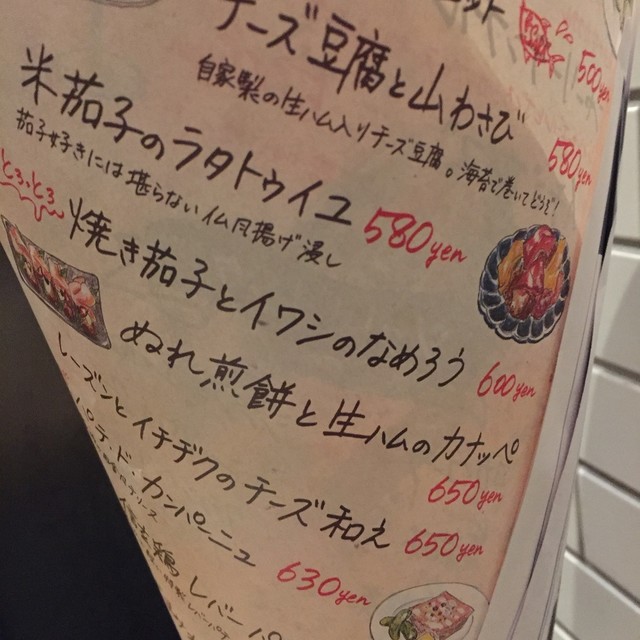 500yen
チーズ豆腐と山わさび 580yen
自家製の生ハム入りチーズ豆腐。海苔で巻いてどうぞ!
米茄子のラタトゥイユ 580yen
茄子好きには堪らない仏風揚げ浸し
とろっとろ
焼き茄子とイワシのなめろう 600yen
ぬれ煎餅と生ハムのカナッペ 650yen
レーズンとイチヂクのチーズ和え 650yen
パテ・ド カンパーニュ 630yen
レバーパ